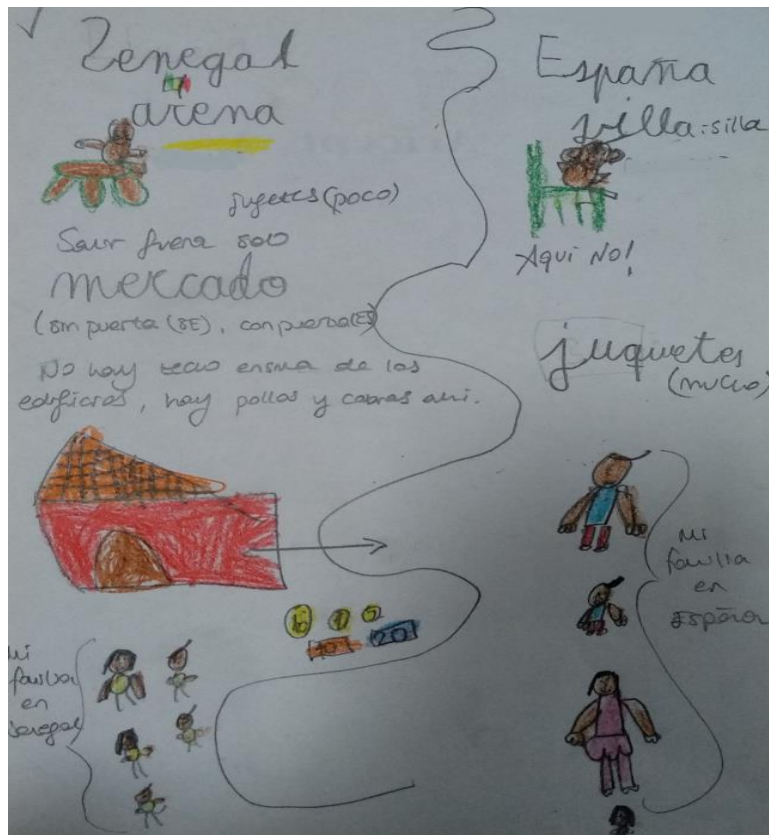 Zenegal
arena
jugetes (poco)
Saur fuera solo
mercado
(sin puerta (SE), con puerta (ES)
No hay tecio ensma de los
edificios, hay pollos y cabras ahi.
10
20
Mi
familia
en
Senegal
España
silla: silla
Aqui No!
juquetes
(mucho)
Mi
familia
en
España